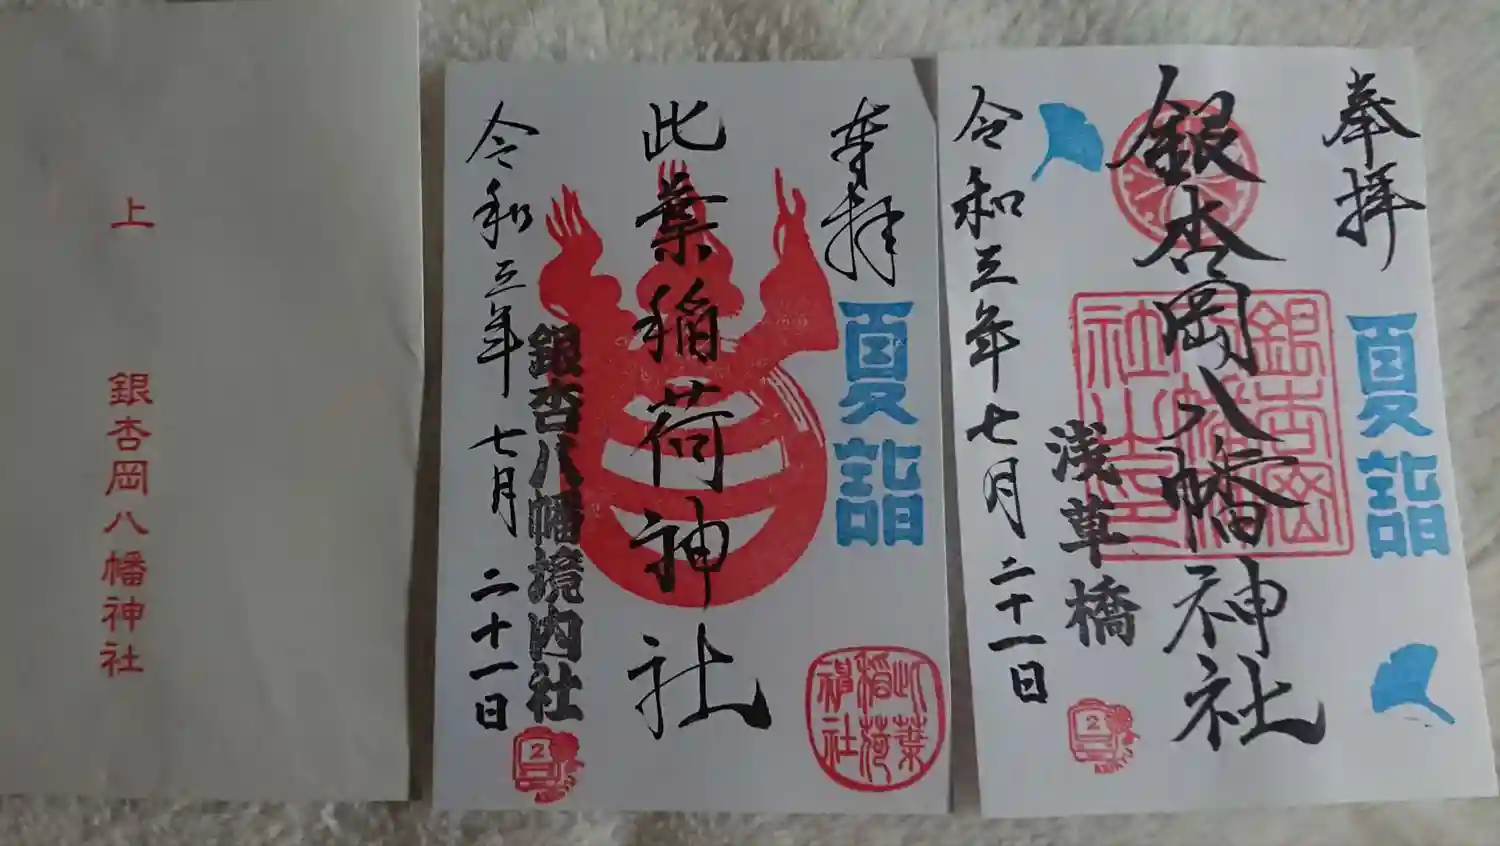 奉拝
夏詣
銀杏岡八幡神社
銀杏岡八幡神社之印
浅草橋
令和三年七月二十一日
2
奉拝
夏詣
此葉稲荷神社
此葉稲荷神社
銀杏八幡境内社
令和三年七月二十一日
2
上
銀杏岡八幡神社